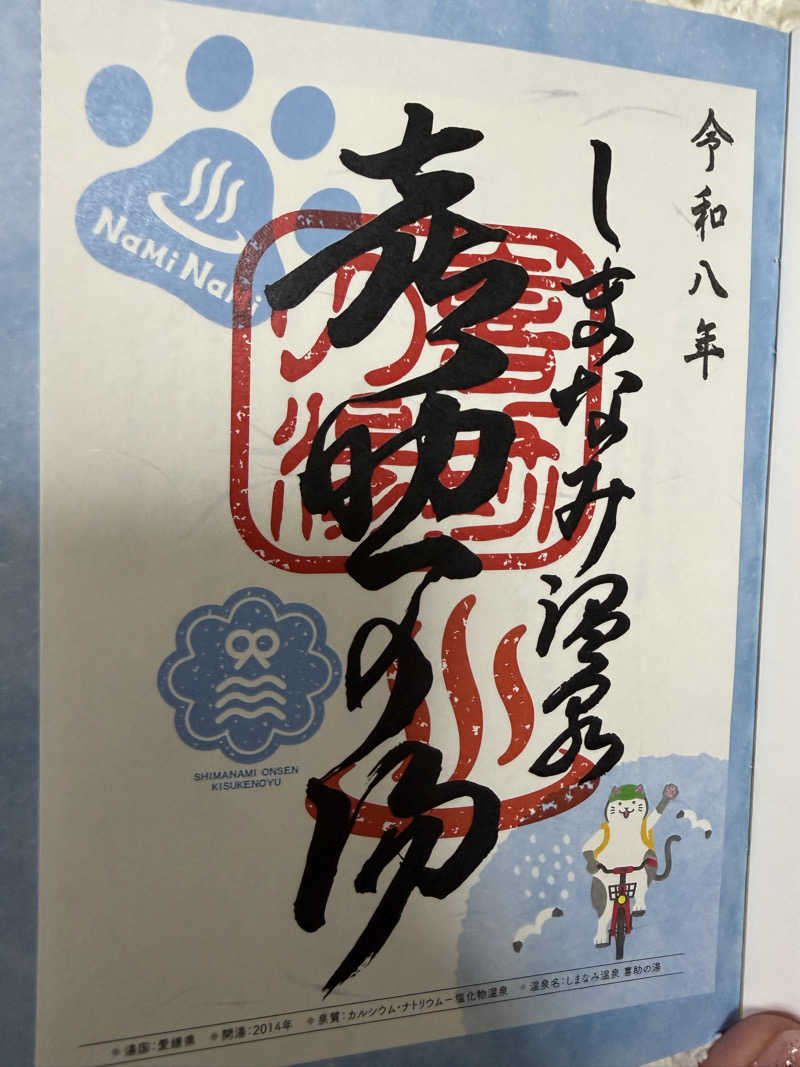 令和八年
しまなみ温泉
喜助の湯
Nami Nami
SHIMANAMI ONSEN
KISUKENOYU
＊湯国：愛媛県 ＊開湯：2014年 ＊泉質：カルシウム・ナトリウム－塩化物温泉 ＊温泉名：しまなみ温泉 喜助の湯